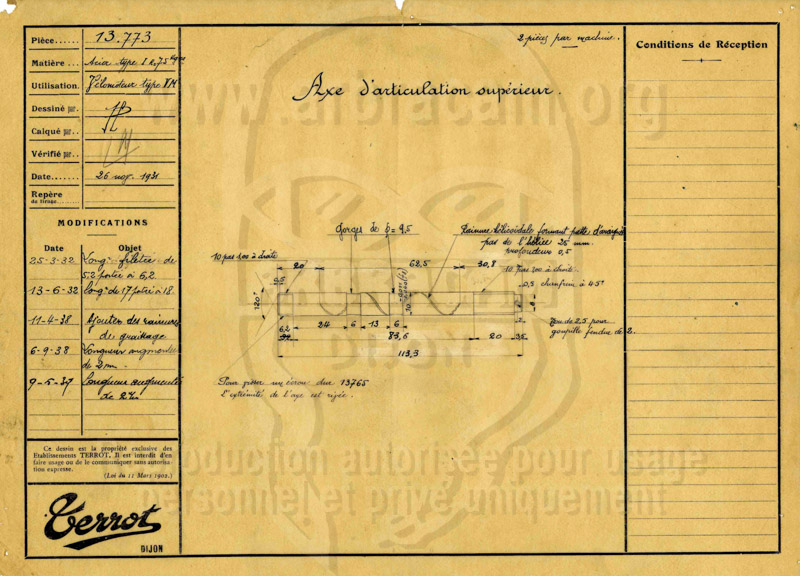 Pièce...... 13.773
Matière.. Acier type I R.75 kgs
Utilisation. Vélomoteur type VM
Dessiné par.
Calqué par..
Vérifié par..
Date....... 26 nov. 1931
Repère
de tirage
MODIFICATIONS
Date Objet
25-3-32 Long. filetée de
5.2 portée à 6,2.
13-6-32 long. de 17 portée à 18.
11-4-38 Ajouter des rainures
de graissage
6-9-38 Longueur augmentée
de 2mm.
9-5-39 Longueur augmentée
de 2
Ce dessin est la propriété exclusive des
Etablissements TERROT. Il est interdit d'en
faire usage ou de le communiquer sans autorisa-
tion expresse.
(Loi du 11 Mars 1902.)
Terrot
DIJON
2 pièces par machine.
Axe d'articulation supérieur.
Gorges de φ = 9,5
Rainure hélicoïdale formant patte d'araignée
pas de l'hélice 25 mm.
profondeur 0,5
10 pas 100 à droite
20 62,5 30,8
10 pas 100 à droite.
0,5
0,5 chanfrein à 45°
120°
Trou de 2,5 pour
goupille fendue de 2.
6,2 24 6 13 6
83,6 20 3,5
113,3
Pour visser un écrou dur 13765
L'extrémité de l'axe est rivée.
Conditions de Réception
www.arbracam.org
Reproduction autorisée pour usage
personnel et privé uniquement